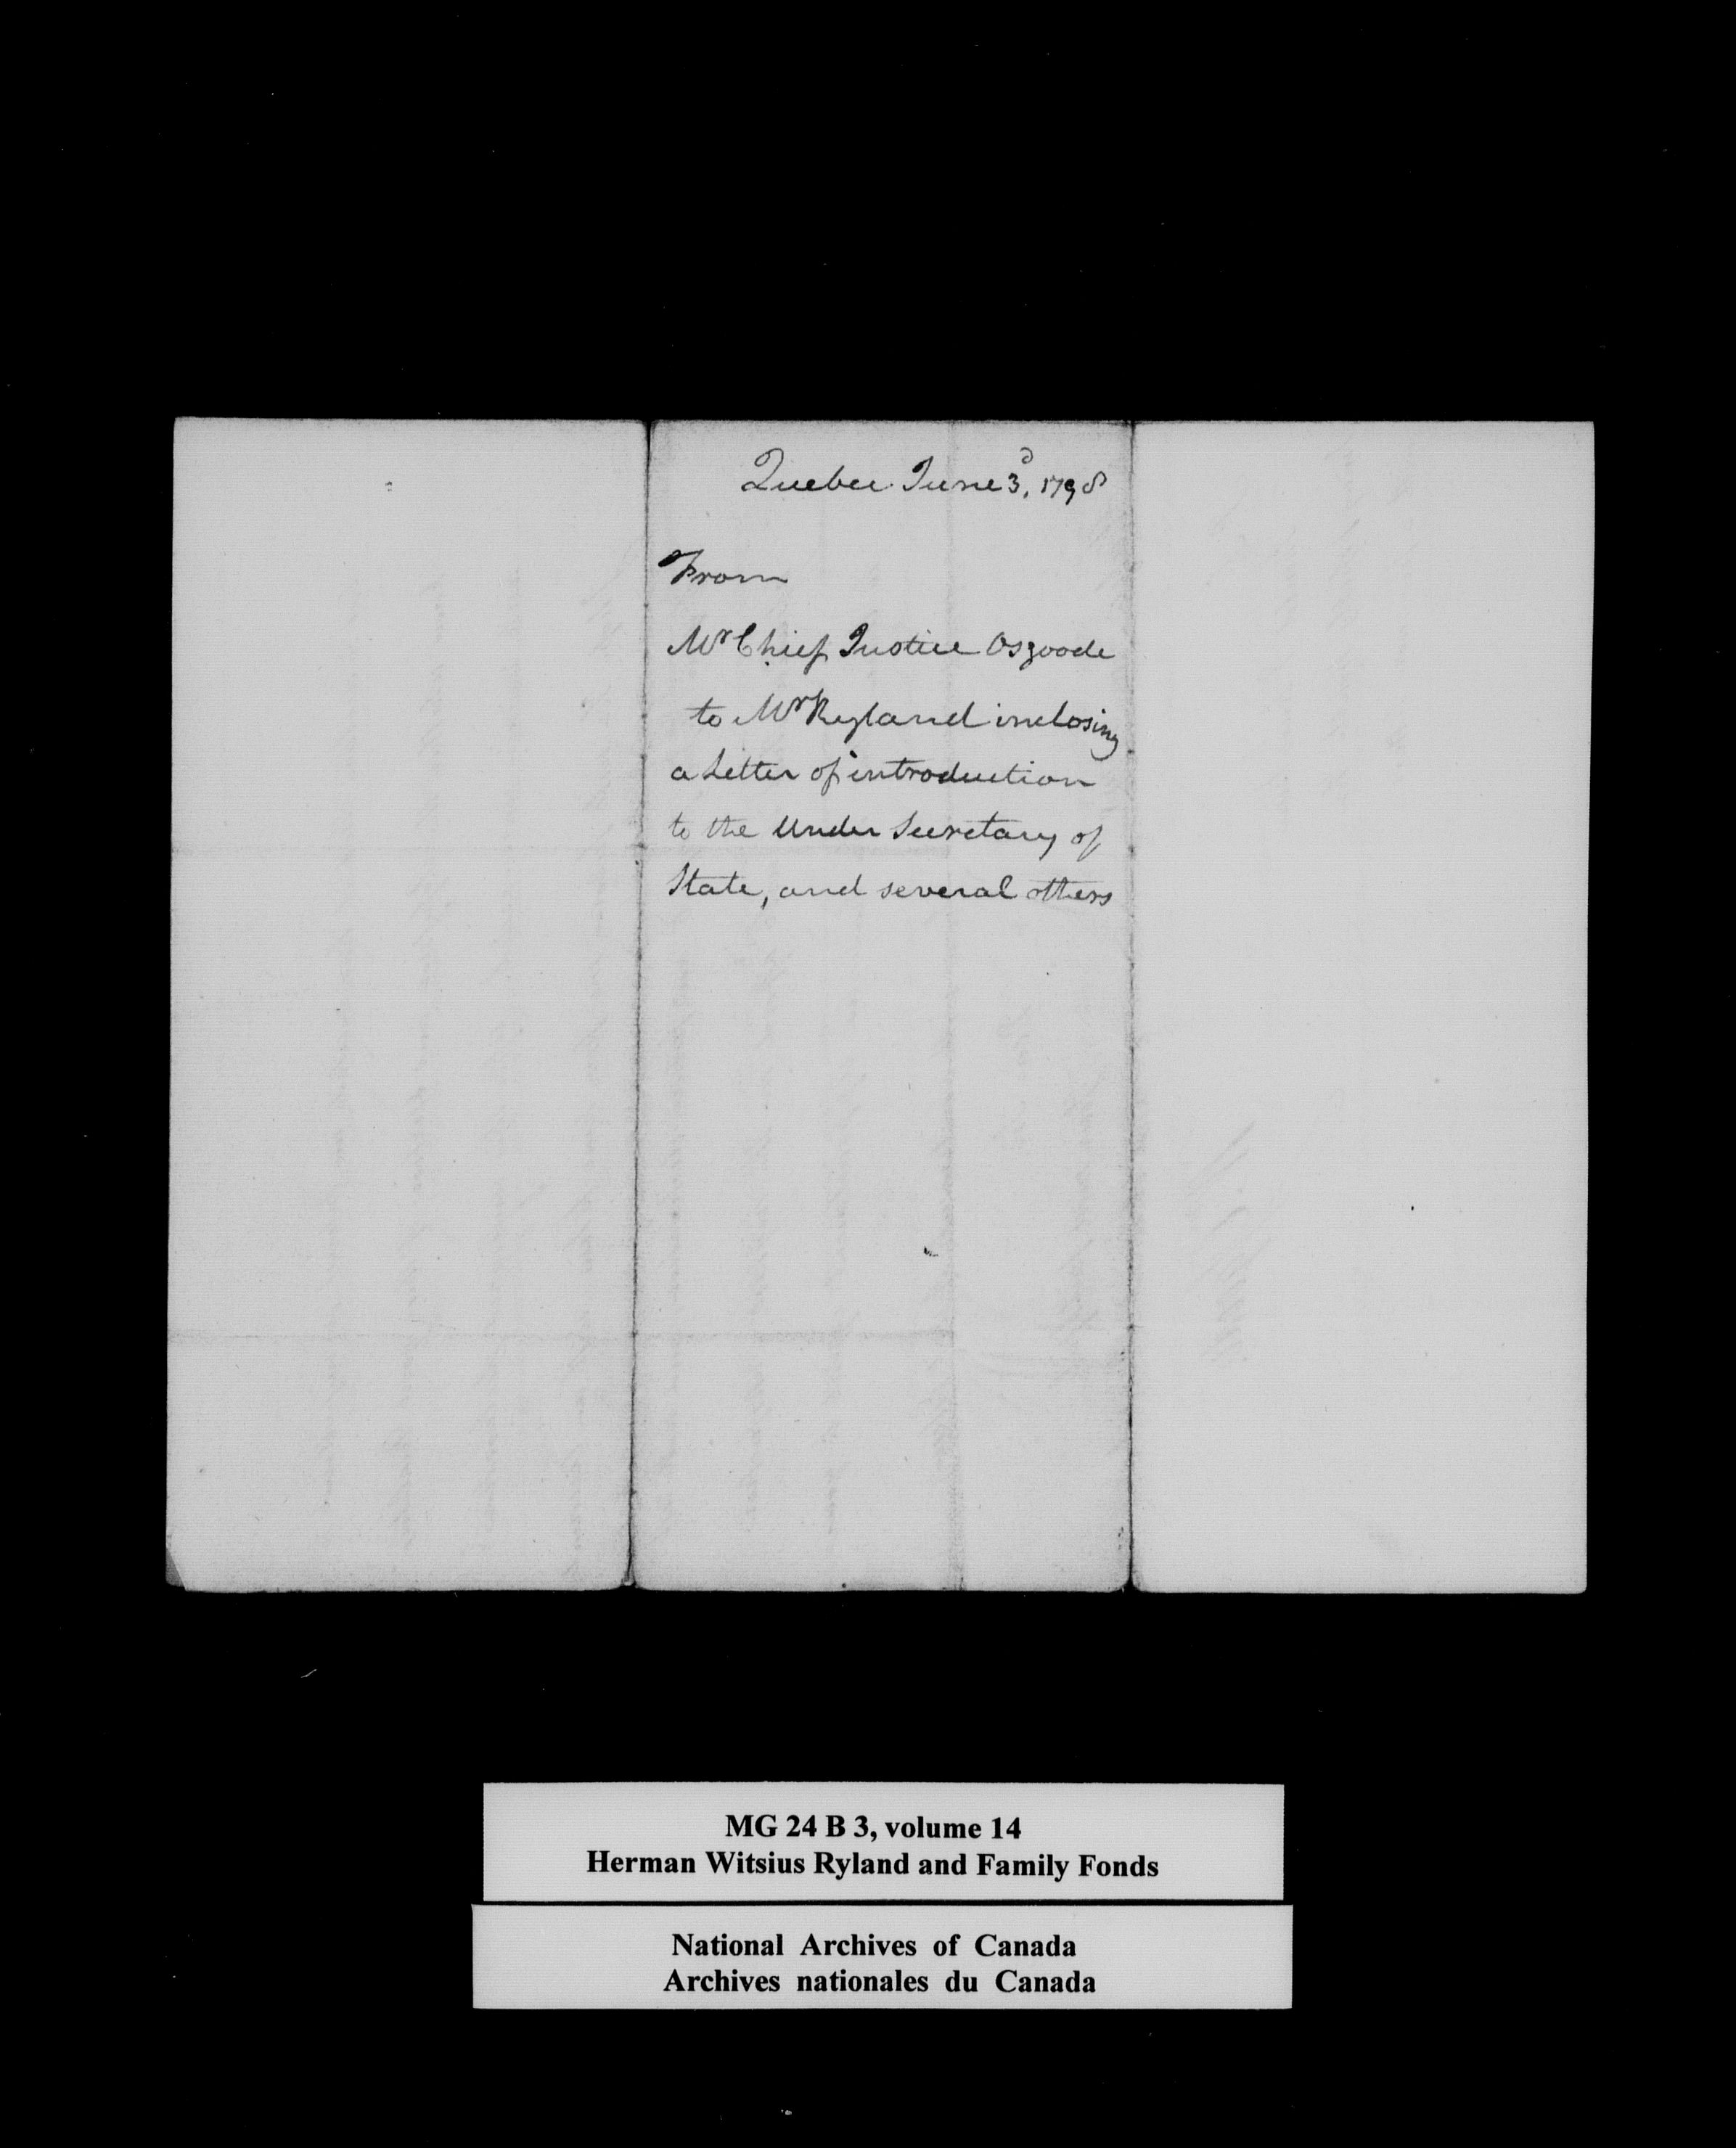 Quebec June 3d, 1798
From
Mr Chief Justice Osgoode
to Mr Ryland inclosing
a Letter of introduction
to the Under Secretary of
State, and several others
MG 24 B 3, volume 14
Herman Witsius Ryland and Family Fonds
National Archives of Canada
Archives nationales du Canada